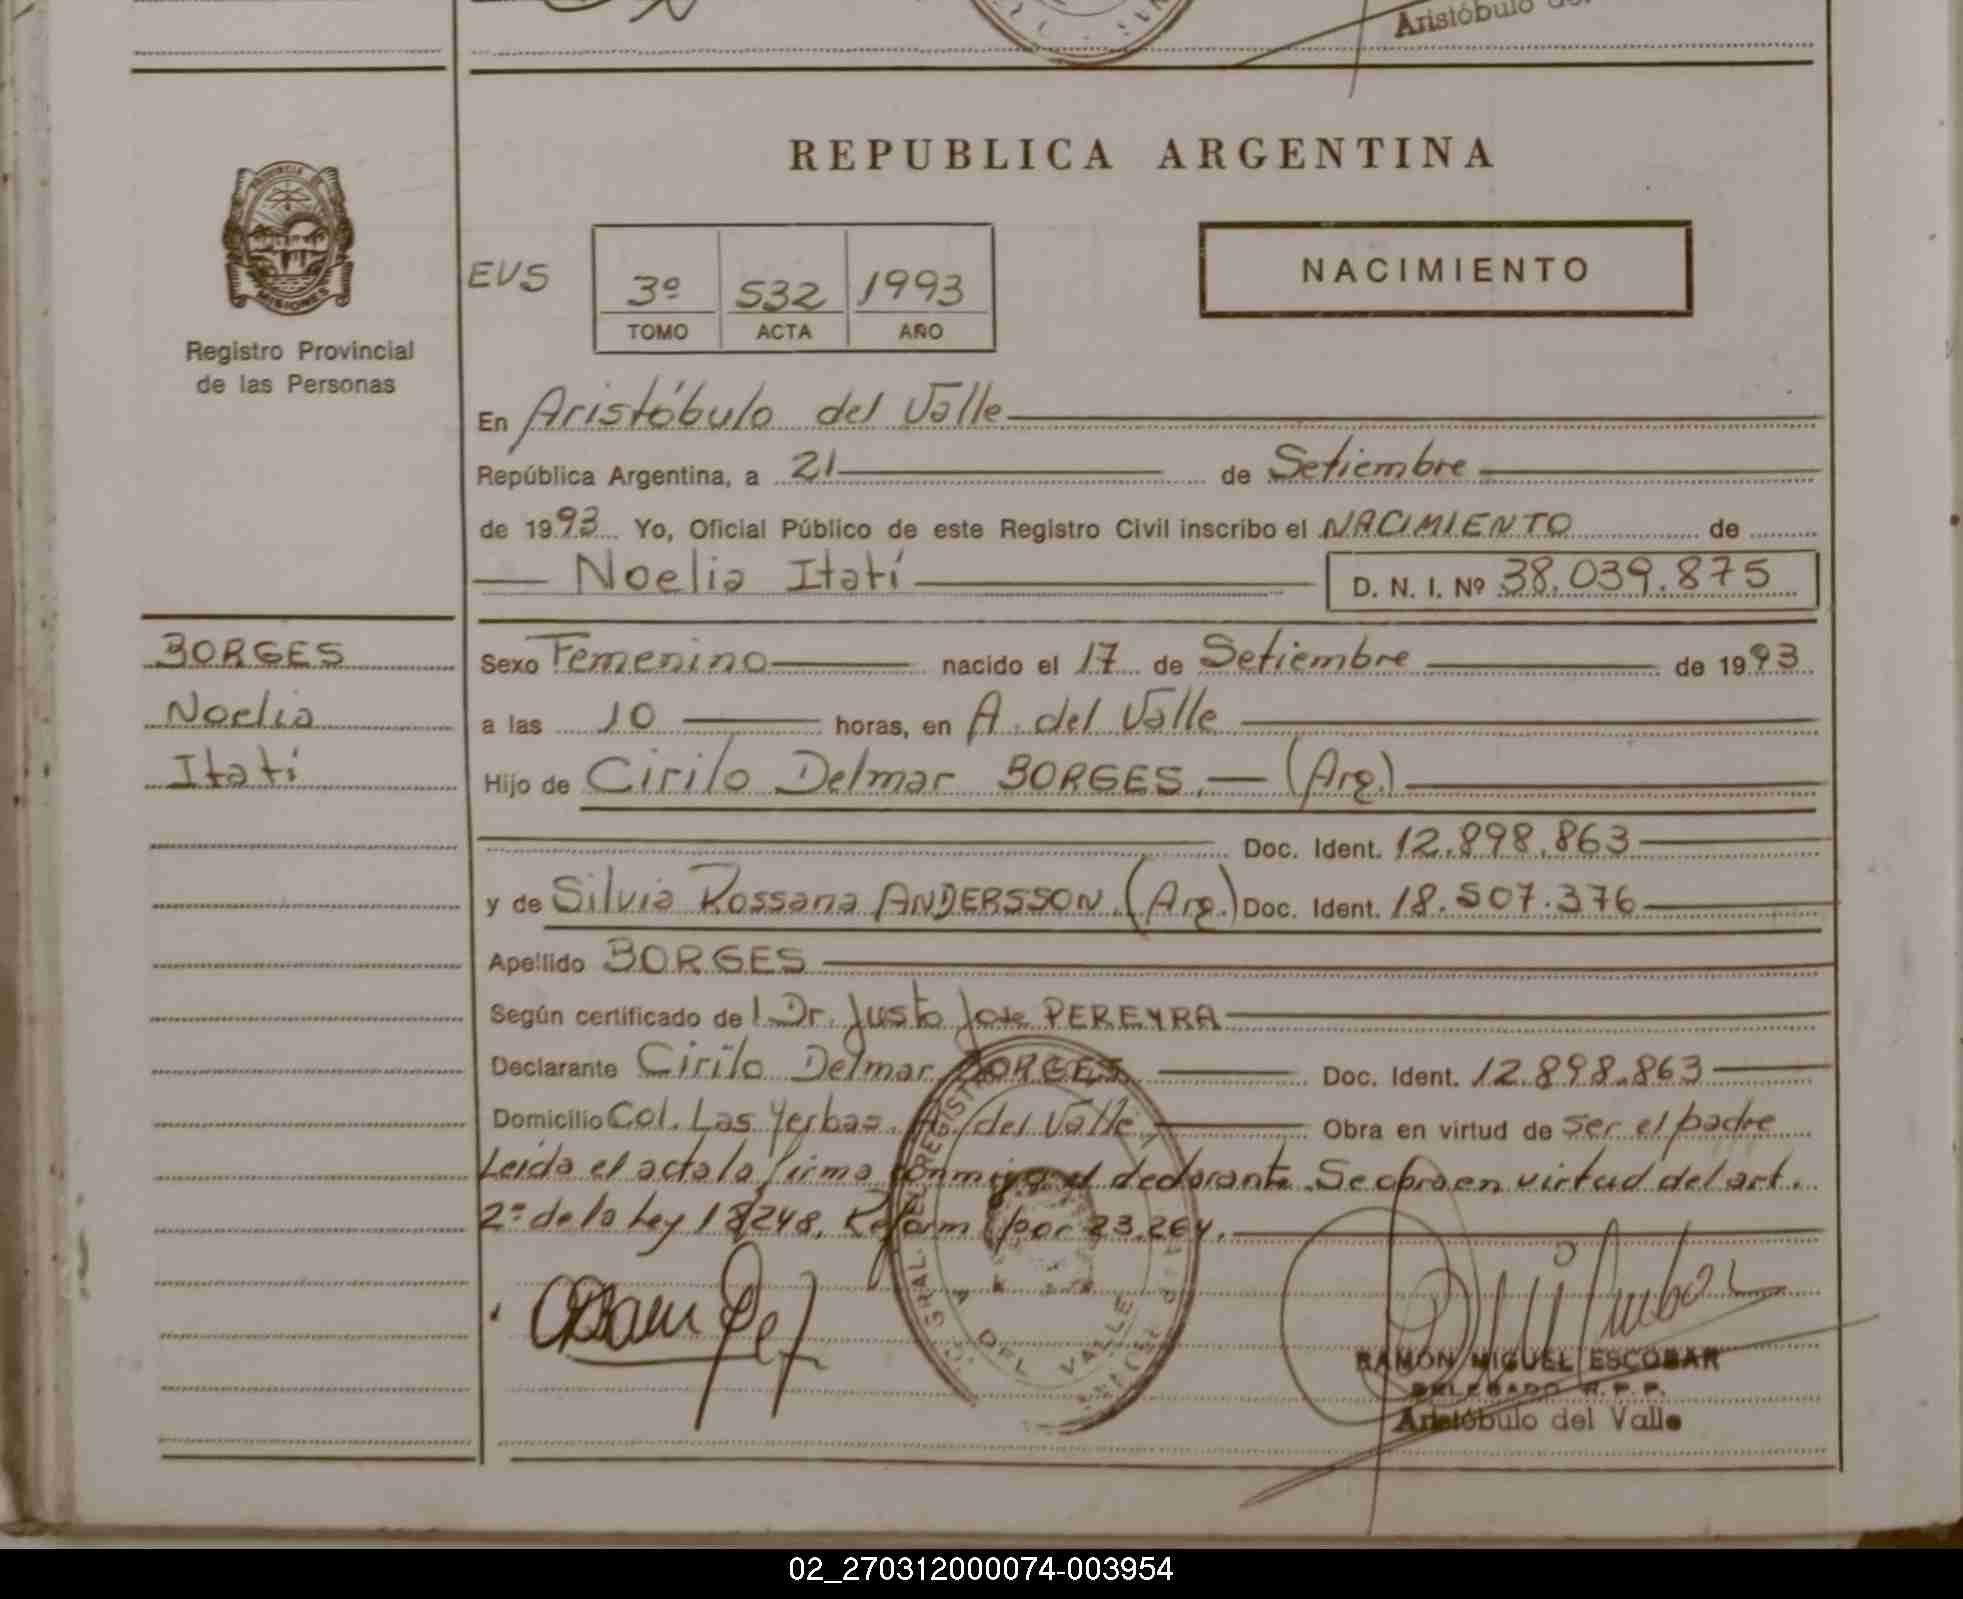 Aristóbulo
REPUBLICA ARGENTINA
PROVINCIA DE
MISIONES
Registro Provincial
de las Personas
EVS
3º 532 1993
TOMO ACTA AÑO
NACIMIENTO
En Aristóbulo del Valle
República Argentina, a 21 de Setiembre
de 1993 Yo, Oficial Público de este Registro Civil inscribo el NACIMIENTO de
Noelia Itatí D. N. I. Nº 38.039.875
BORGES
Noelia
Itatí
Sexo Femenino nacido el 17 de Setiembre de 1993
a las 10 horas, en A. del Valle
Hijo de Cirilo Delmar BORGES.— (Arg.)
Doc. Ident. 12.898.863
y de Silvia Rossana ANDERSSON (Arg.) Doc. Ident. 18.507.376
Apellido BORGES
Según certificado del Dr. Justo Jose PEREYRA
Declarante Cirilo Delmar BORGES Doc. Ident. 12.898.863
Domicilio Col. Las Yerbas. A. del Valle Obra en virtud de ser el padre
Leída el acta la firma conmigo el declarante. Se obra en virtud del art.
2º de la Ley 18248. Reform. por 23.264.
DEL VALLE
RAMON MIGUEL ESCOBAR
DELEGADO R. P. P.
Aristóbulo del Valle
02_270312000074-003954